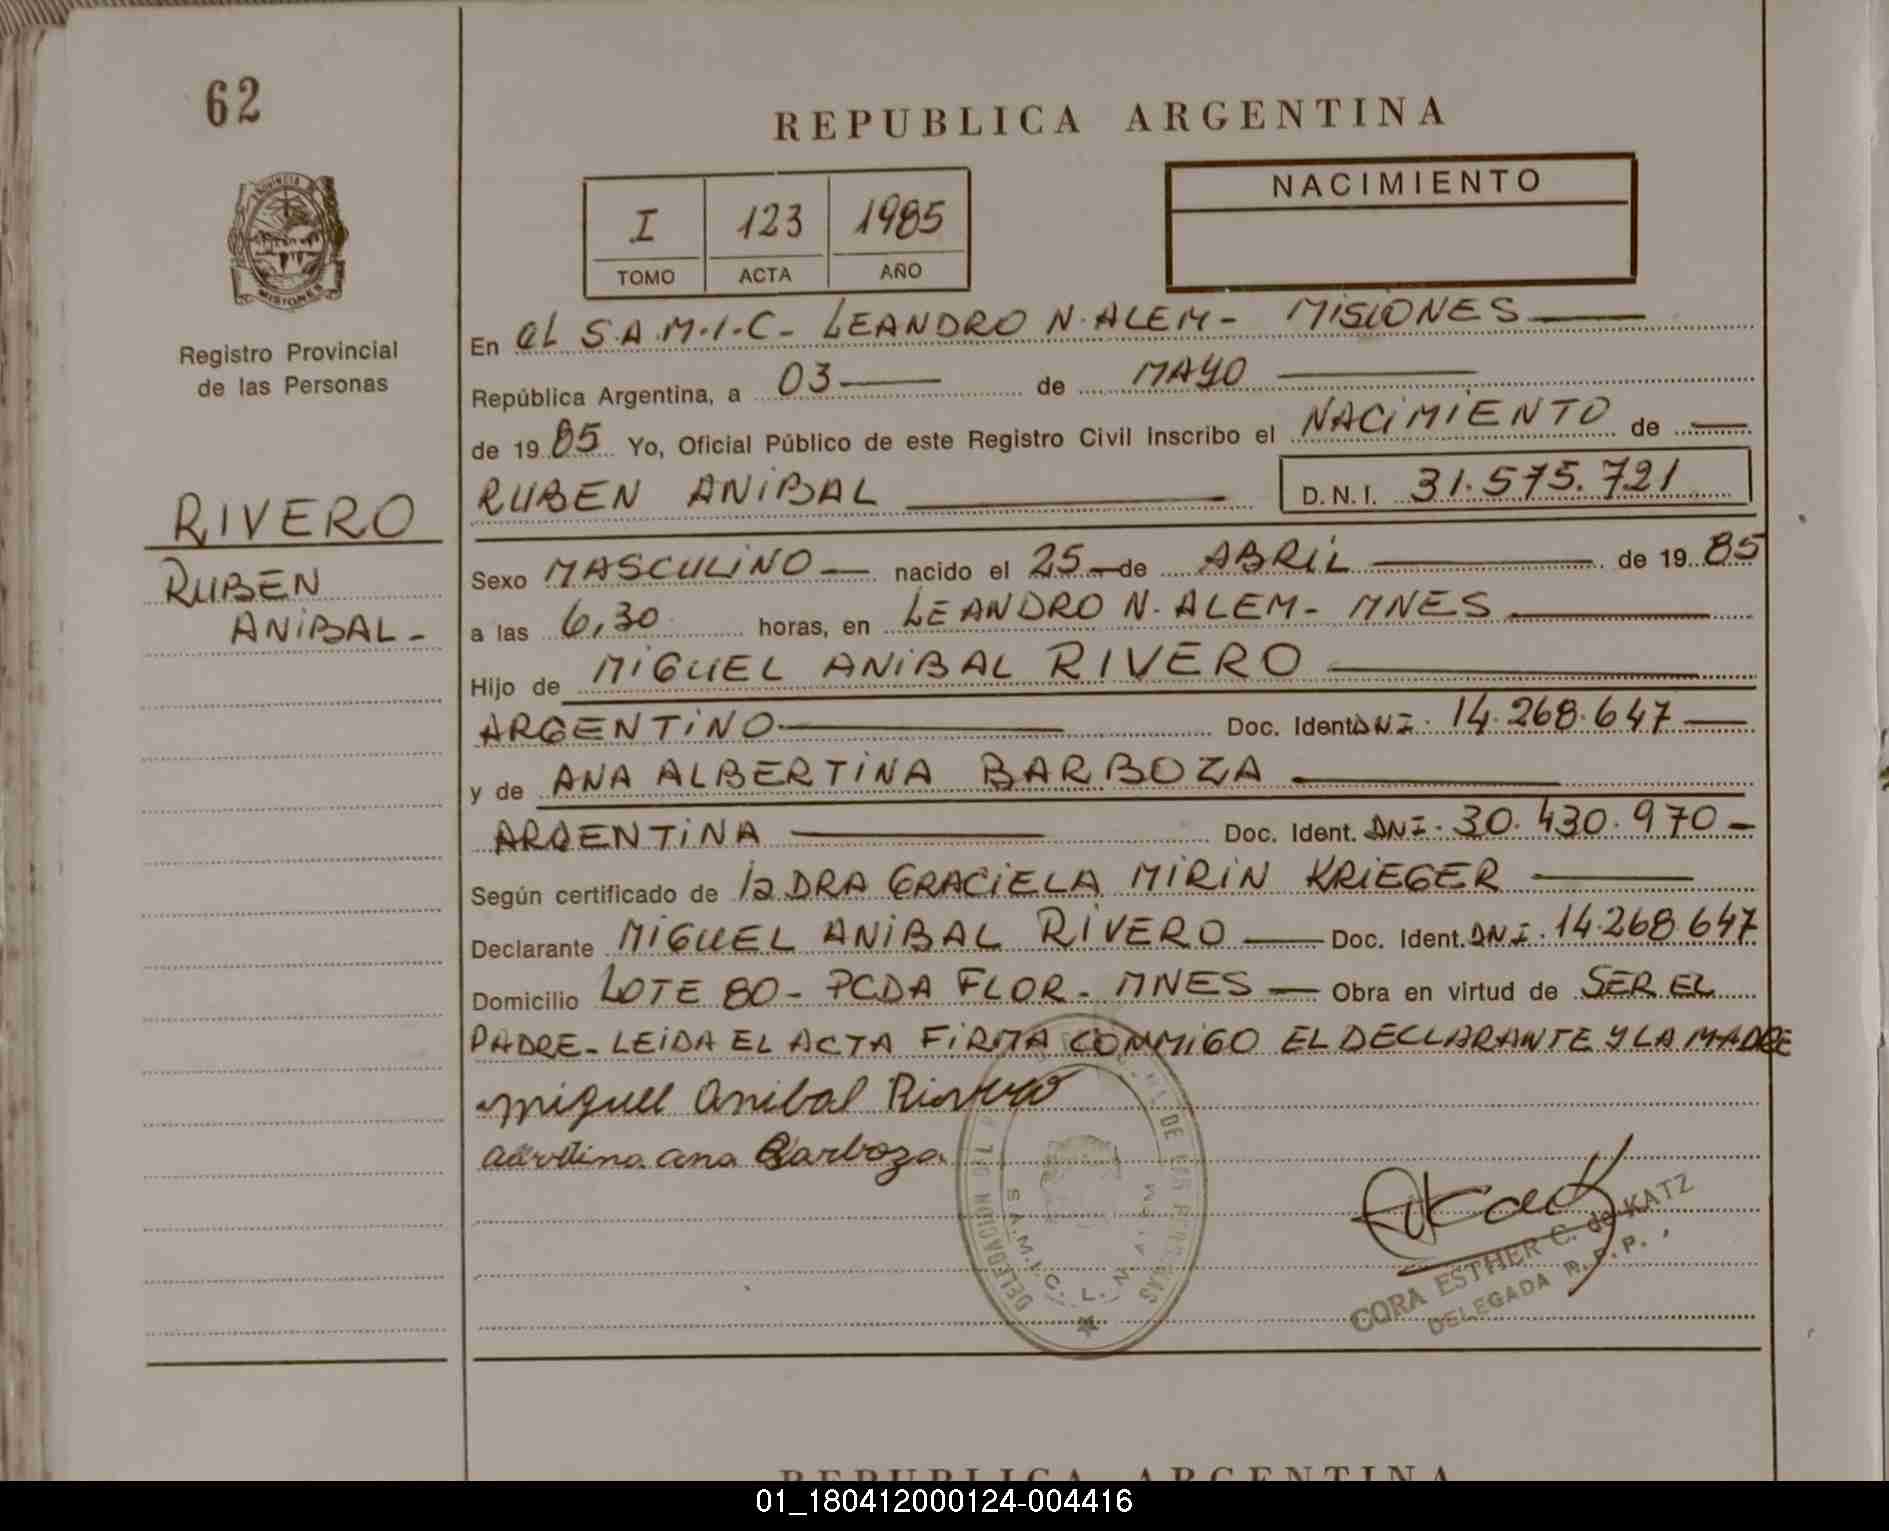 62
REPUBLICA ARGENTINA
NACIMIENTO
I 123 1985
TOMO ACTA AÑO
PROVINCIA DE
MISIONES
Registro Provincial
de las Personas
RIVERO
RUBEN
ANIBAL-
En el S.A.M.I.C- LEANDRO N. ALEM- MISIONES
República Argentina, a 03 de MAYO
de 1985 Yo, Oficial Público de este Registro Civil Inscribo el NACIMIENTO de
RUBEN ANIBAL D.N.I. 31.575.721
Sexo MASCULINO nacido el 25 de ABRIL de 1985
a las 6,30 horas, en LEANDRO N. ALEM- MNES
Hijo de MIGUEL ANIBAL RIVERO
ARGENTINO Doc. Ident. DNI. 14.268.647
y de ANA ALBERTINA BARBOZA
ARGENTINA Doc. Ident. DNI. 30.430.970-
Según certificado de la DRA GRACIELA MIRIN KRIEGER
Declarante MIGUEL ANIBAL RIVERO Doc. Ident. DNI. 14.268.647
Domicilio LOTE 80- PCDA FLOR- MNES Obra en virtud de SER EL
PADRE- LEIDA EL ACTA FIRMA CONMIGO EL DECLARANTE Y LA MADRE
Miguel Anibal Rivero
ana Barboza
DELEGACION DE LAS PERSONAS
S.A.M.I.C. L. N. ALEM
CORA ESTHER C. de KATZ
DELEGADA R.P.P.
REPUBLICA ARGENTINA
01_180412000124-004416